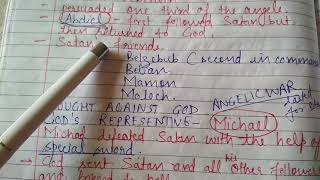 persuaded one third of the angels.
Abdiel - first followed Satan but
then returned to God.
- Satan's friends.
Belzebub (second in comman
Belian
Mamon
Moloch.
ANGELIC WAR
FOUGHT AGAINST GOD
GOD'S REPRESENTIVE - Michael
Michael defeated Satan with the help of
special sword.
- God sent Satan and all his other followers